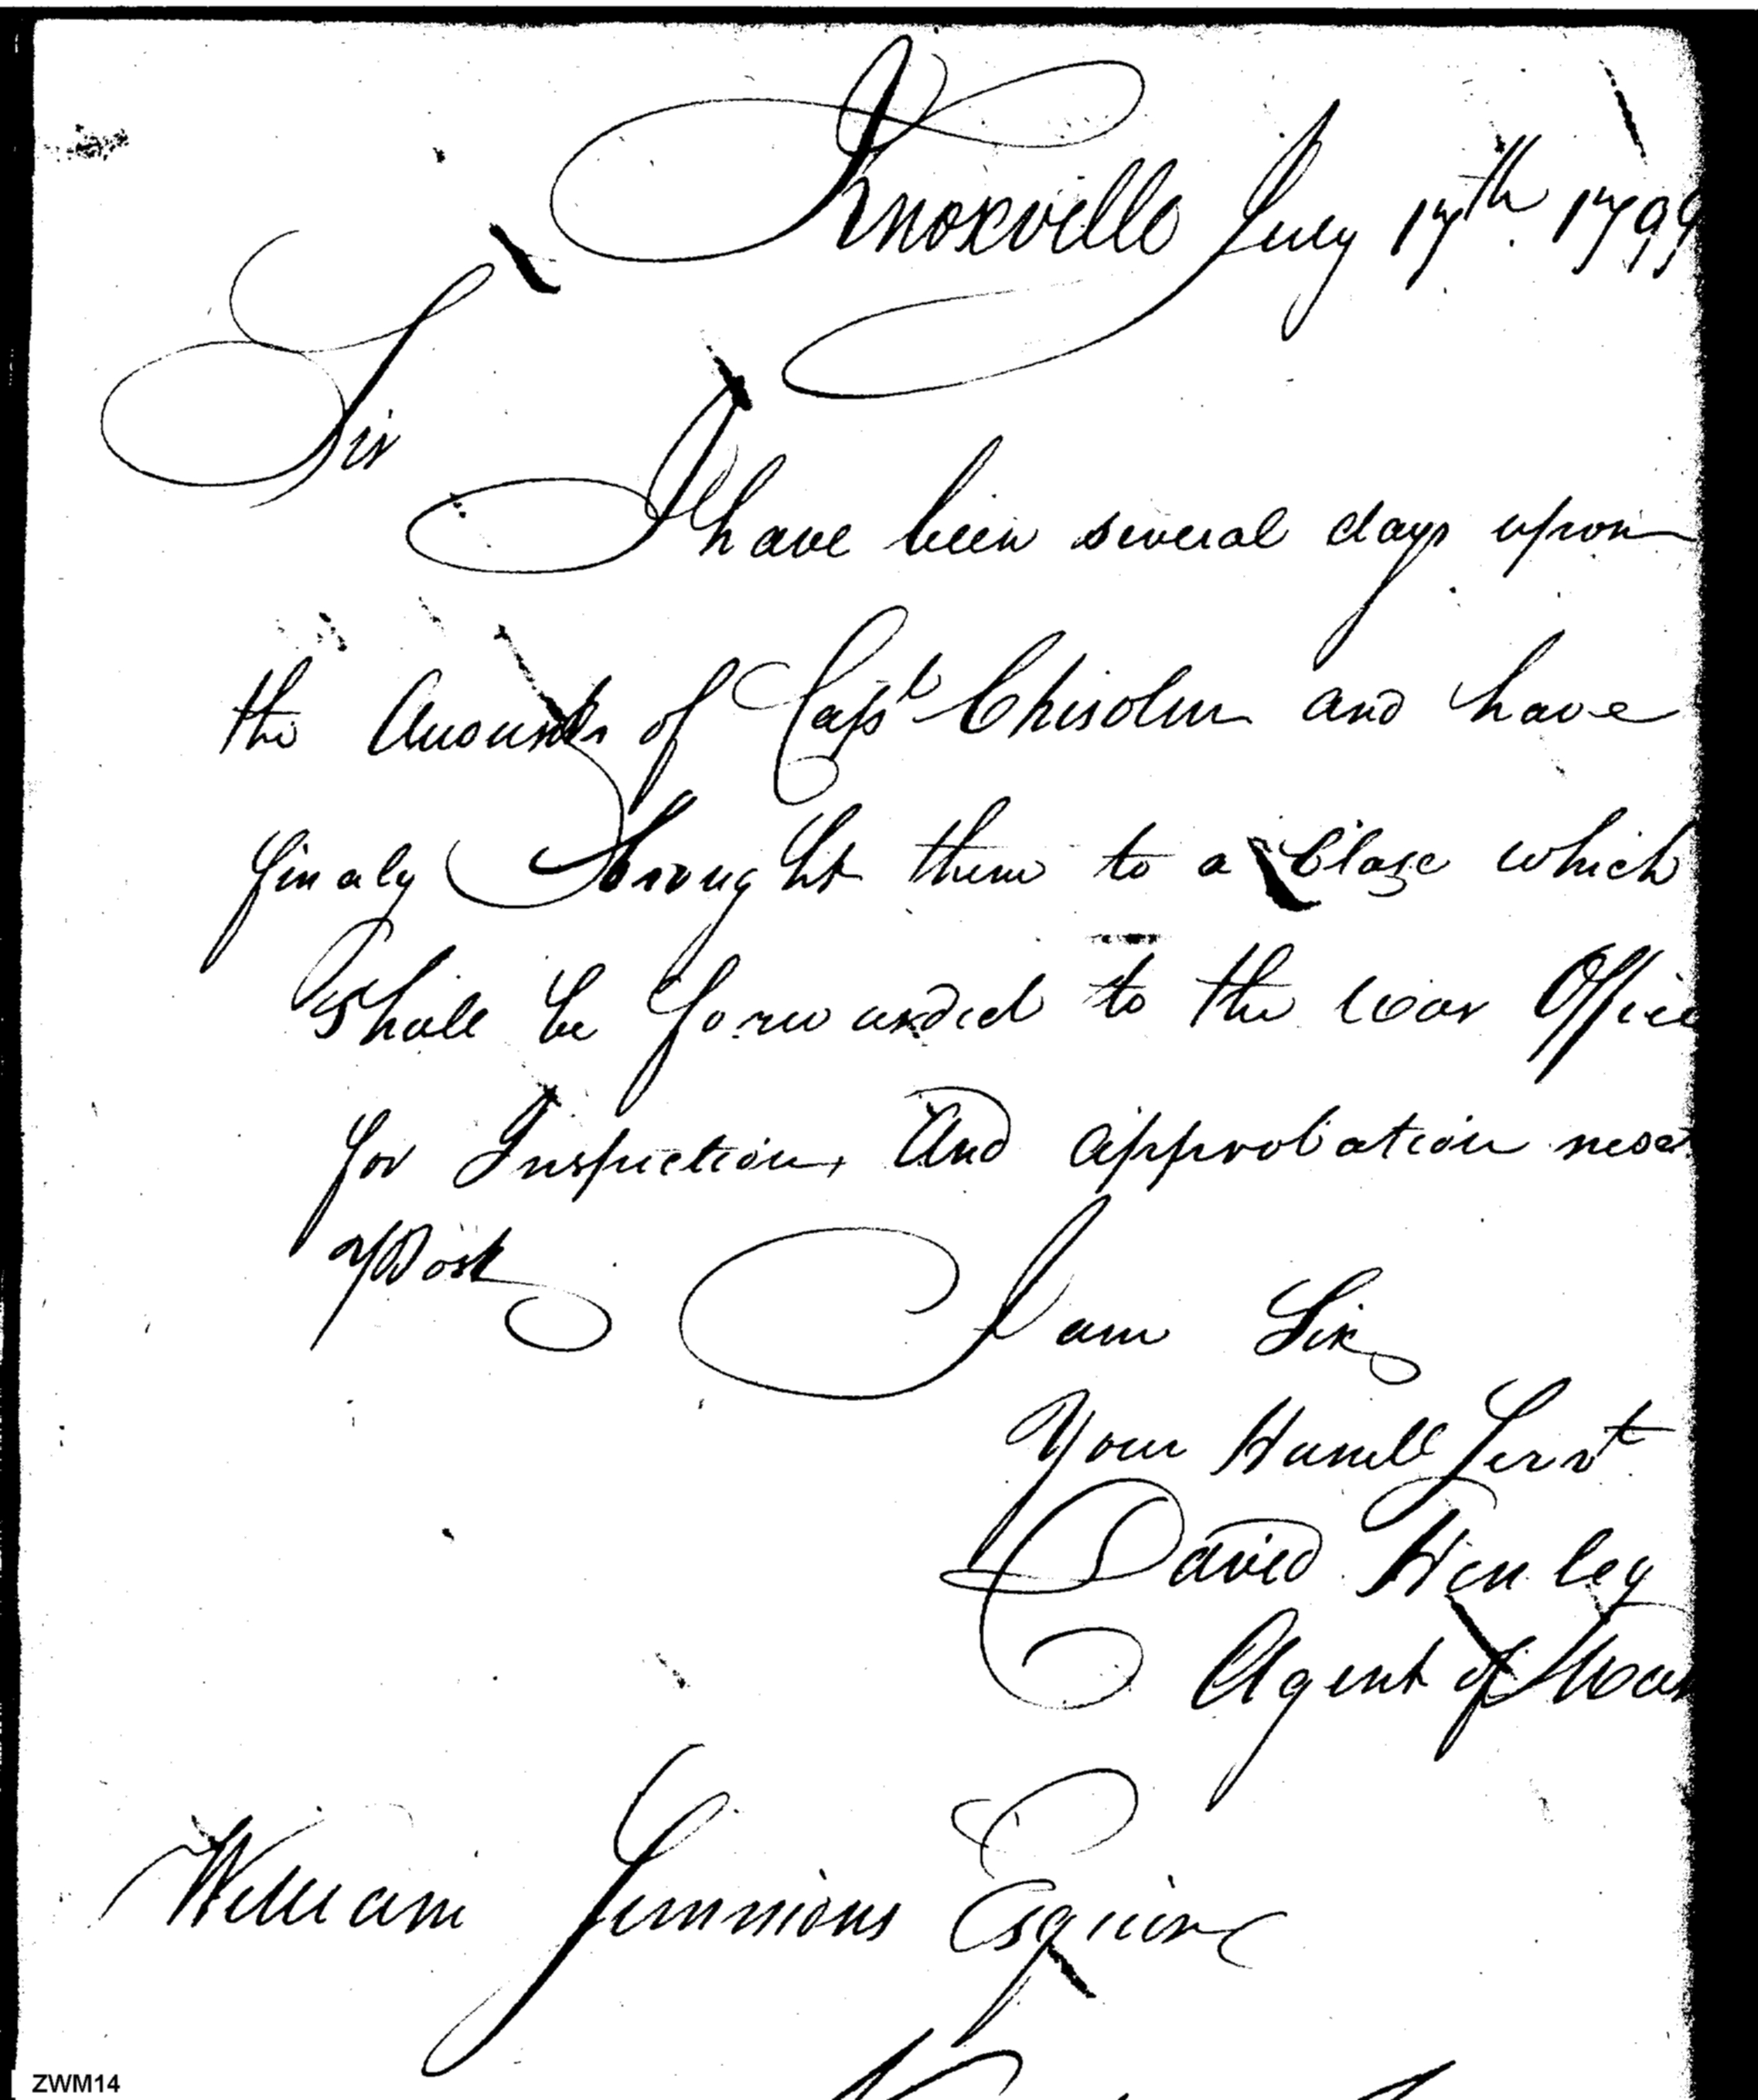 Knoxville July 17th 1799
Sir
I have been several days upon
the Accounts of Capt Chisolm and have
finaly brought them to a Close which
Shall be forwarded to the war Office
for Inspection, And approbation next
Post
I am Sir
Your Humble Servt
David Henley
Agent of War
William Simmons Esquire
ZWM14